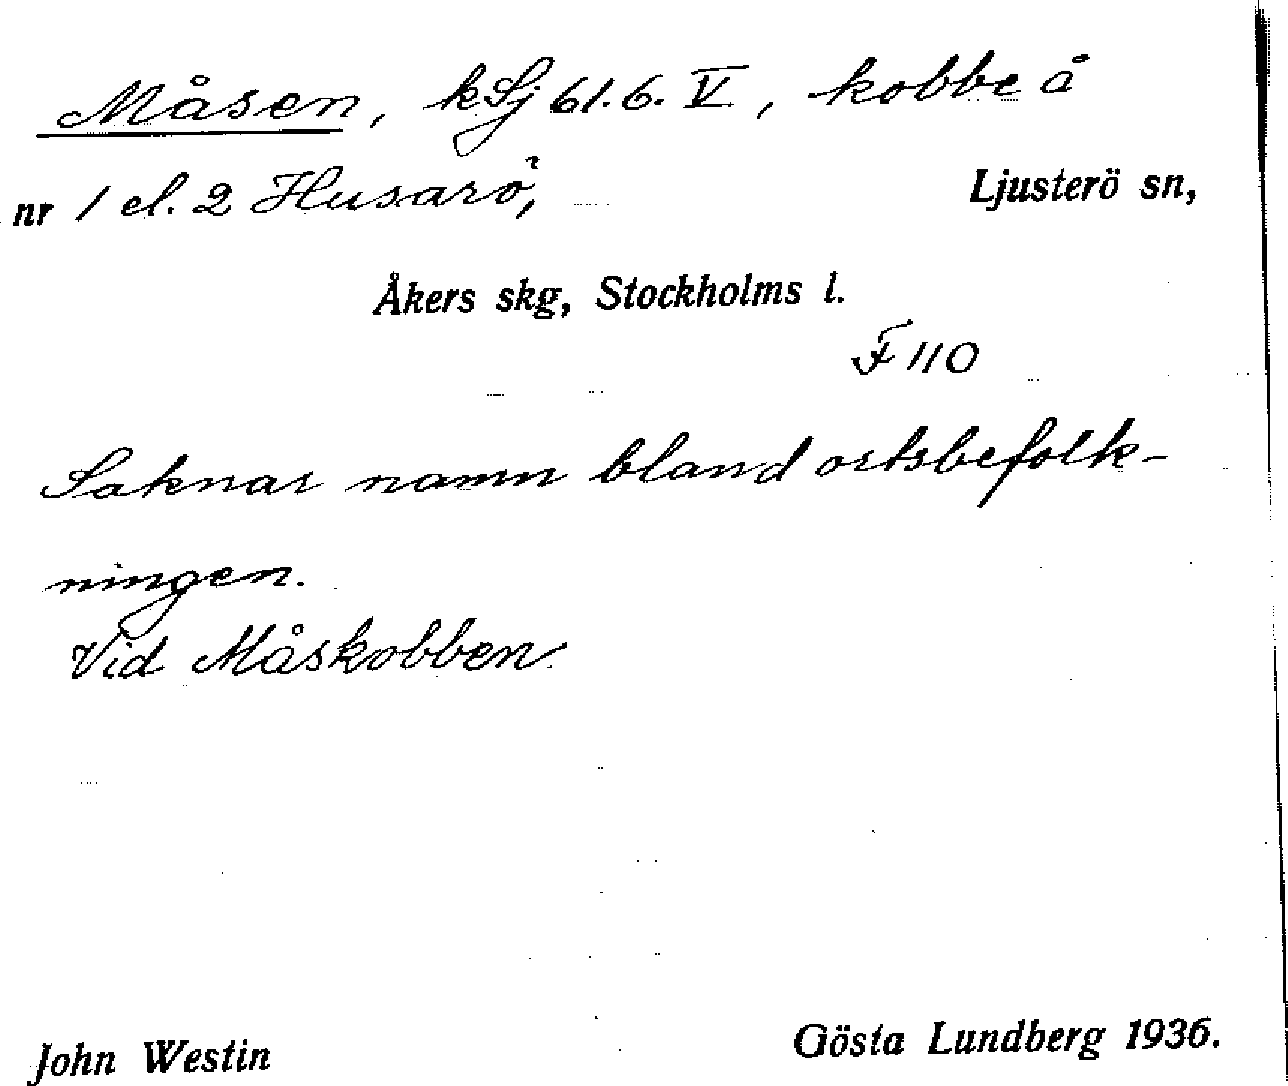 Måsen, kSj 61.6. V, kobbe å
nr 1 el. 2 Husarö, Ljusterö sn,
Åkers skg, Stockholms l.
F 110
Saknar namn bland ortsbefolk-
ningen.
Vid Måskobben.
John Westin Gösta Lundberg 1936.